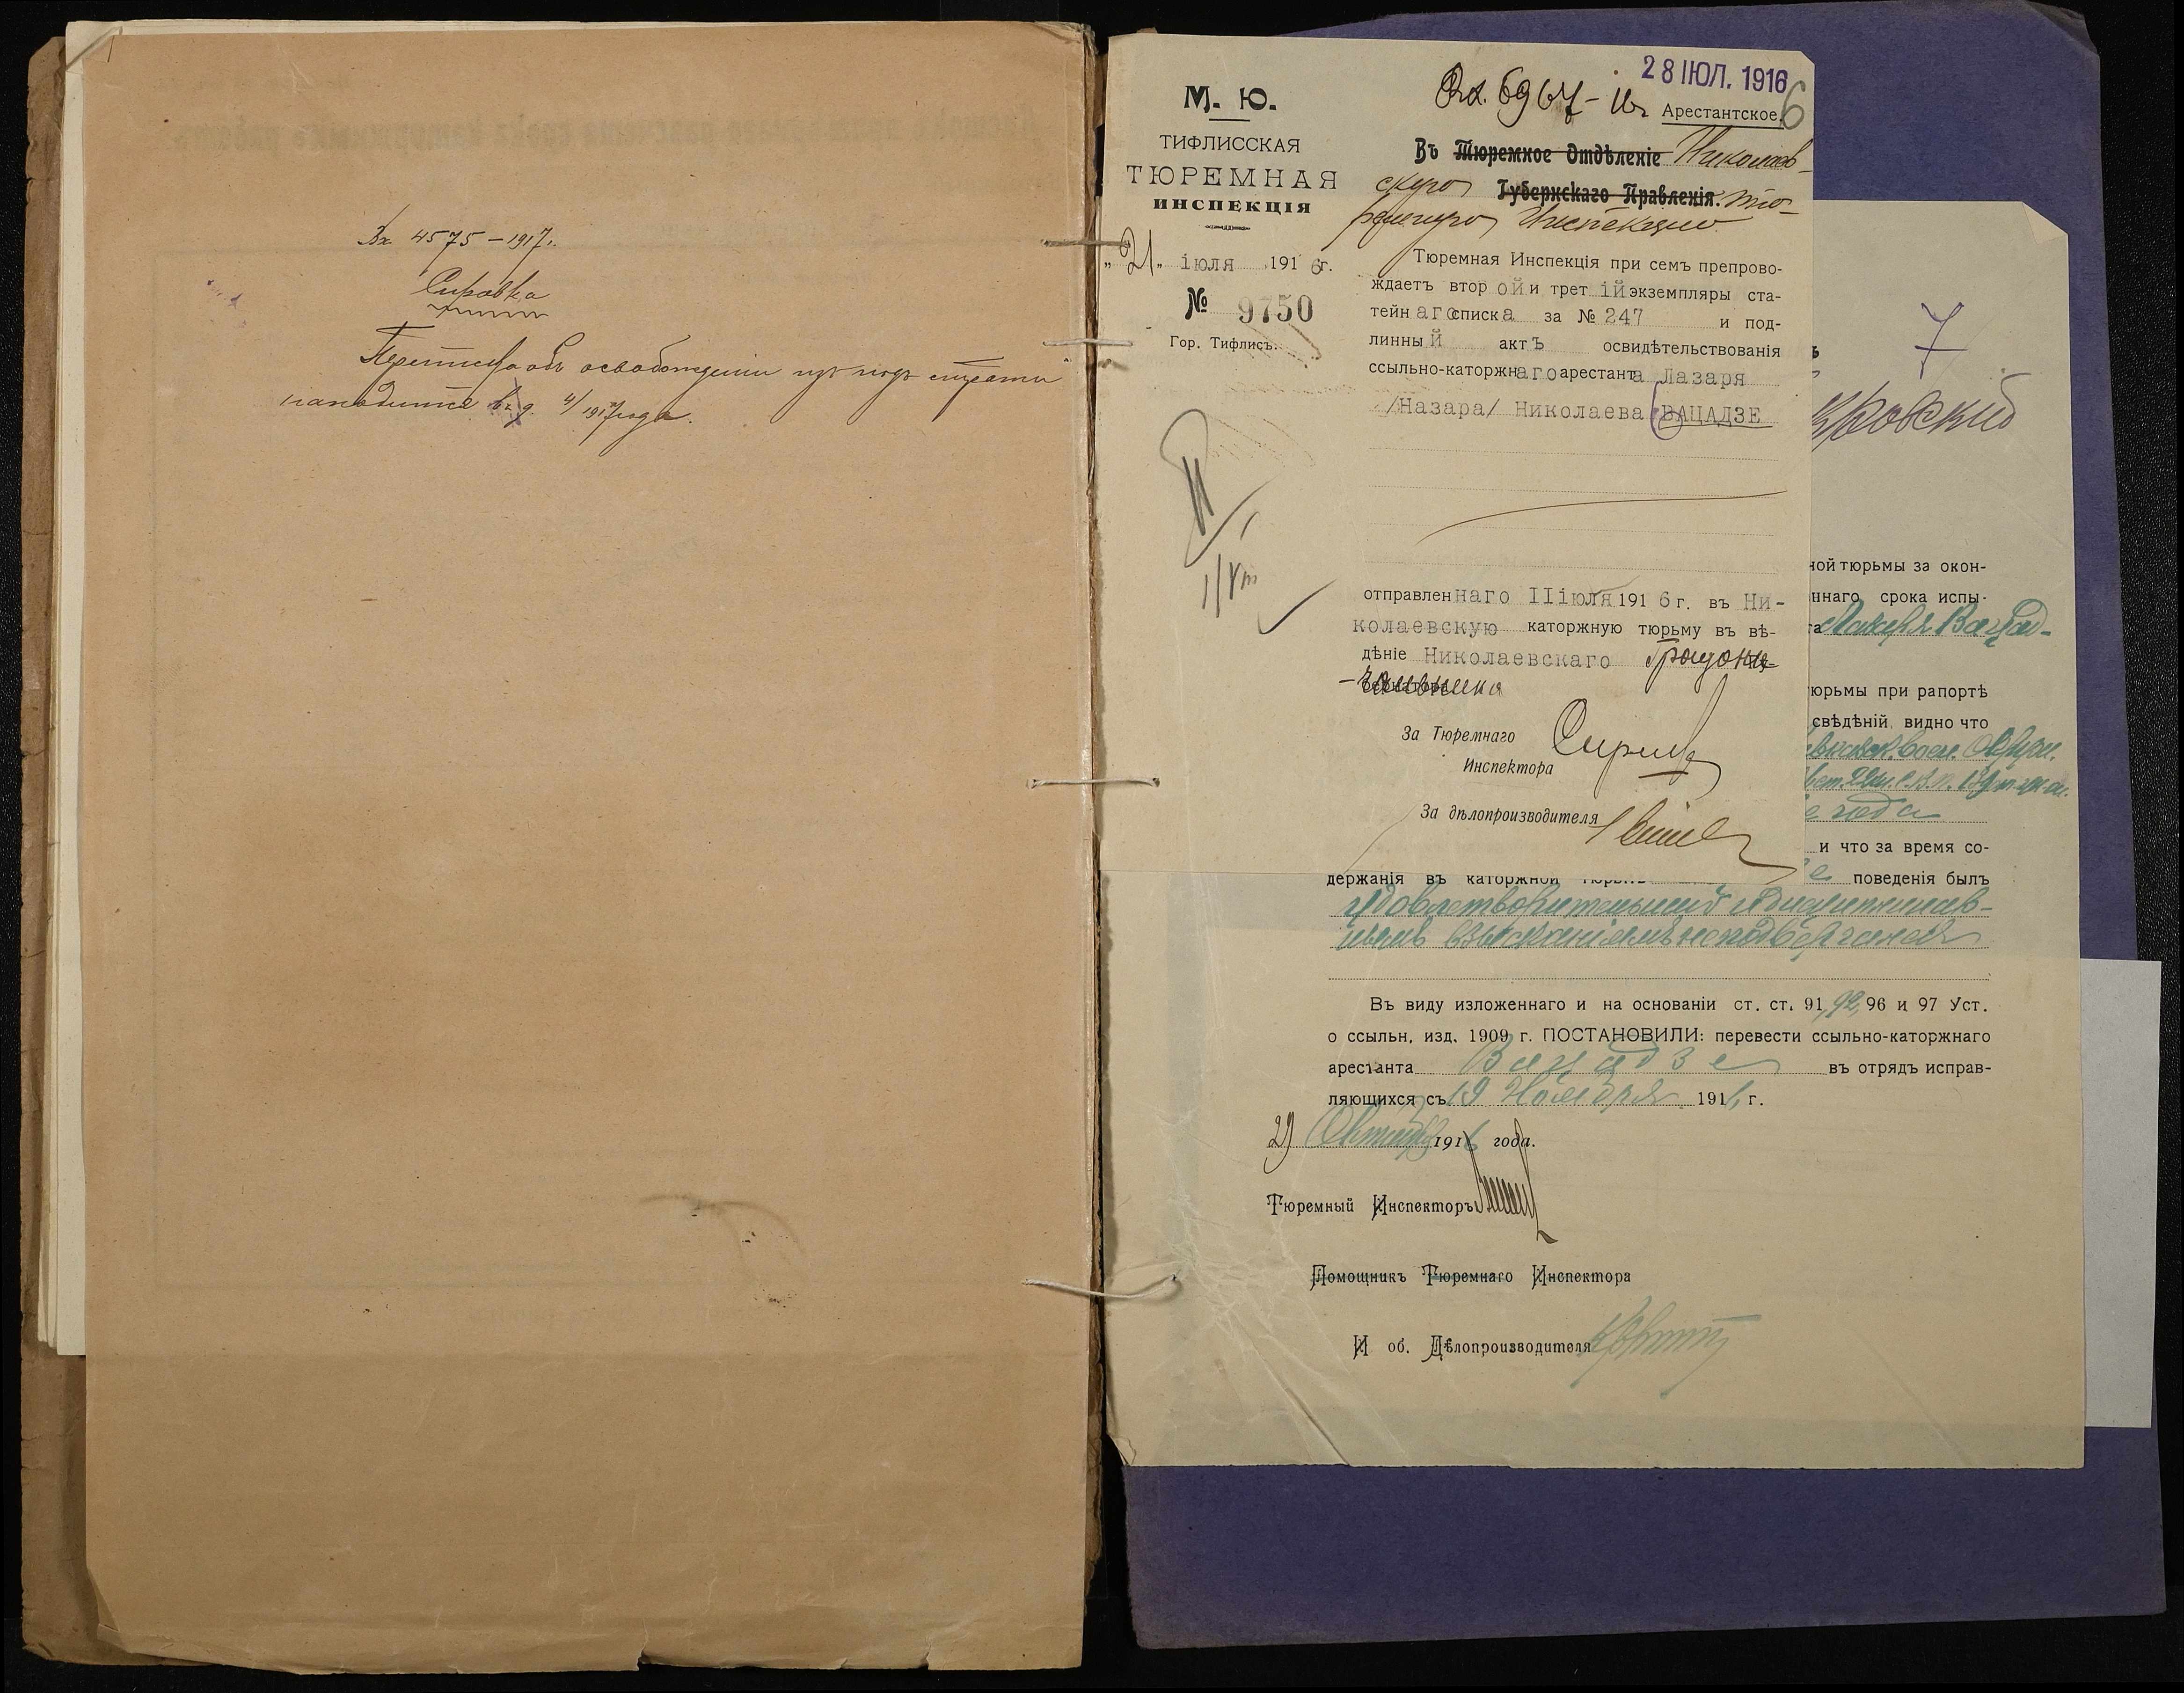 Вх 4575 – 1917 г.
Справка
Переписка объ освобожденіи изъ подъ стражи
находится въ д. 4/1917 года.
28 ІЮЛ. 1916
Вх. 6967 –
6
М. Ю.
ТИФЛИССКАЯ
ТЮРЕМНАЯ
ИНСПЕКЦІЯ
„21„ іюля 1916 г.
№ 9750
Гор. Тифлисъ.
1/VIII
Арестантское.
Въ Тюремное Отдѣленіе Николаев-
скую Губернскаго Правленія. Тю-
ремную Инспекцію
Тюремная Инспекція при семъ препрово-
ждаетъ второй и третій экземпляры ста-
тейнаго списка за № 247 и под-
линный актъ освидѣтельствованія
ссыльно-каторжнаго арестанта Лазаря
/Назара/ Николаева ВАЦАДЗЕ
отправленнаго II іюля 1916 г. въ Ни-
колаевскую каторжную тюрьму въ вѣ-
дѣніе Николаевскаго Градона-
чальника
За Тюремнаго
Инспектора
За дѣлопроизводителя
7
ной тюрьмы за окон-
ннаго срока испы-
та Лазаря Вацад-
юрьмы при рапортѣ
свѣдѣній видно что
года
и что за время со-
держанія въ каторжной поведенія былъ
удовлетворительнаго дисциплинар-
нымъ взысканіямъ не подвергался
Въ виду изложеннаго и на основаніи ст. ст. 91, 92, 96 и 97 Уст.
о ссыльн. изд. 1909 г. ПОСТАНОВИЛИ: перевести ссыльно-каторжнаго
арестанта Вацадзе въ отрядъ исправ-
ляющихся съ 19 Ноября 1916 г.
29 Октября 1916 года.
Тюремный Инспекторъ
Помощникъ Тюремнаго Инспектора
И об. Дѣлопроизводителя